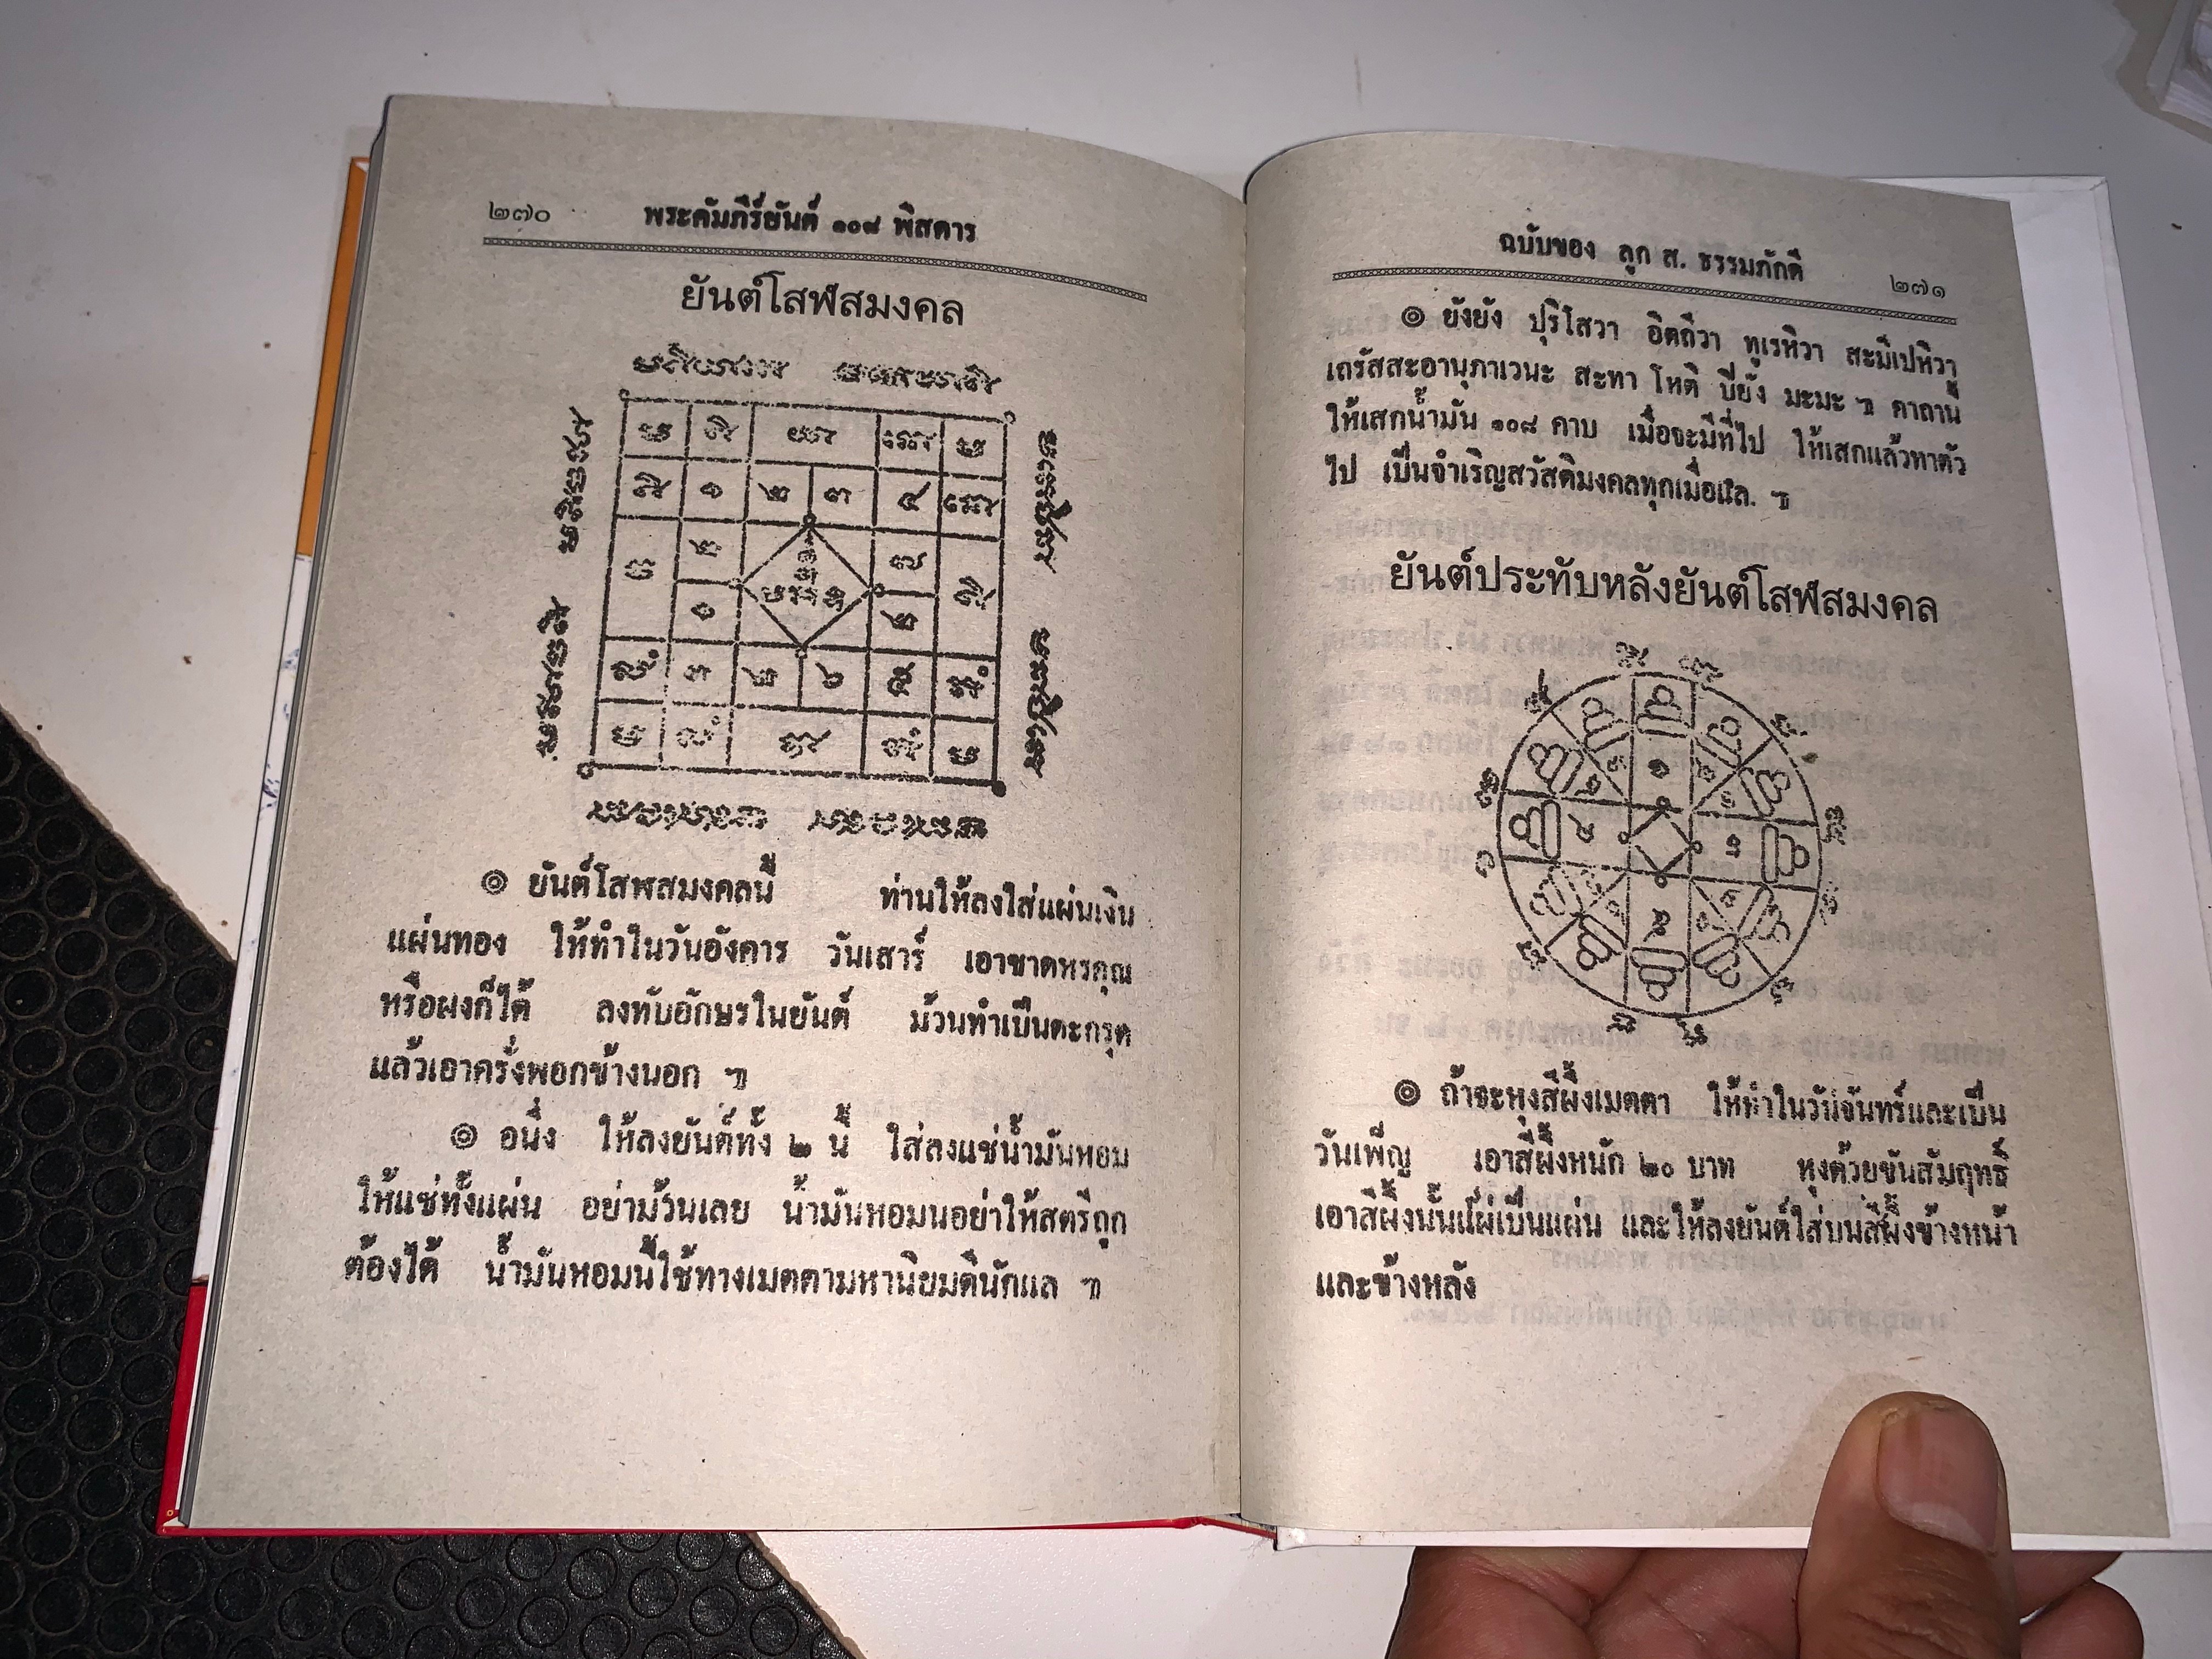 ๒๗๐ พระคัมภีร์ยันต์ ๑๐๘ พิสดาร
ยันต์โสฬสมงคล
๑ ๒ ๓ ๔
๒ ๗
๑ ๒
๓ ๒ ๖ ๕
๏ ยันต์โสฬสมงคลนี้ ท่านให้ลงใส่แผ่นเงิน
แผ่นทอง ให้ทำในวันอังคาร วันเสาร์ เอาชาดหรคุณ
หรือผงก็ได้ ลงทับอักษรในยันต์ ม้วนทำเป็นตะกรุด
แล้วเอาครั่งพอกข้างนอก ๚
๏ อนึ่ง ให้ลงยันต์ทั้ง ๒ นี้ ใส่ลงแช่น้ำมันหอม
ให้แช่ทั้งแผ่น อย่าม้วนเลย น้ำมันหอมนอย่าให้สตรีถูก
ต้องได้ น้ำมันหอมนี้ใช้ทางเมตตามหานิยมดีนักแล ๚
ฉบับของ ลูก ส. ธรรมภักดี ๒๗๑
๏ ยังยัง ปุริโสวา อิตถีวา ทูเรหิวา สะมีเปหิวา
เถรัสสะอานุภาเวนะ สะทา โหติ ปียัง มะมะ ๚ คาถานี้
ให้เสกน้ำมัน ๑๐๘ คาบ เมื่อจะมีที่ไป ให้เสกแล้วทาตัว
ไป เป็นจำเริญสวัสดิมงคลทุกเมื่อแล. ๚
ยันต์ประทับหลังยันต์โสฬสมงคล
๏ ถ้าจะหุงสีผึ้งเมตตา ให้ทำในวันจันทร์และเป็น
วันเพ็ญ เอาสีผึ้งหนัก ๒๐ บาท หุงด้วยขันสัมฤทธิ์
เอาสีผึ้งนั้นแผ่เป็นแผ่น และให้ลงยันต์ใส่บนสีผึ้งข้างหน้า
และข้างหลัง